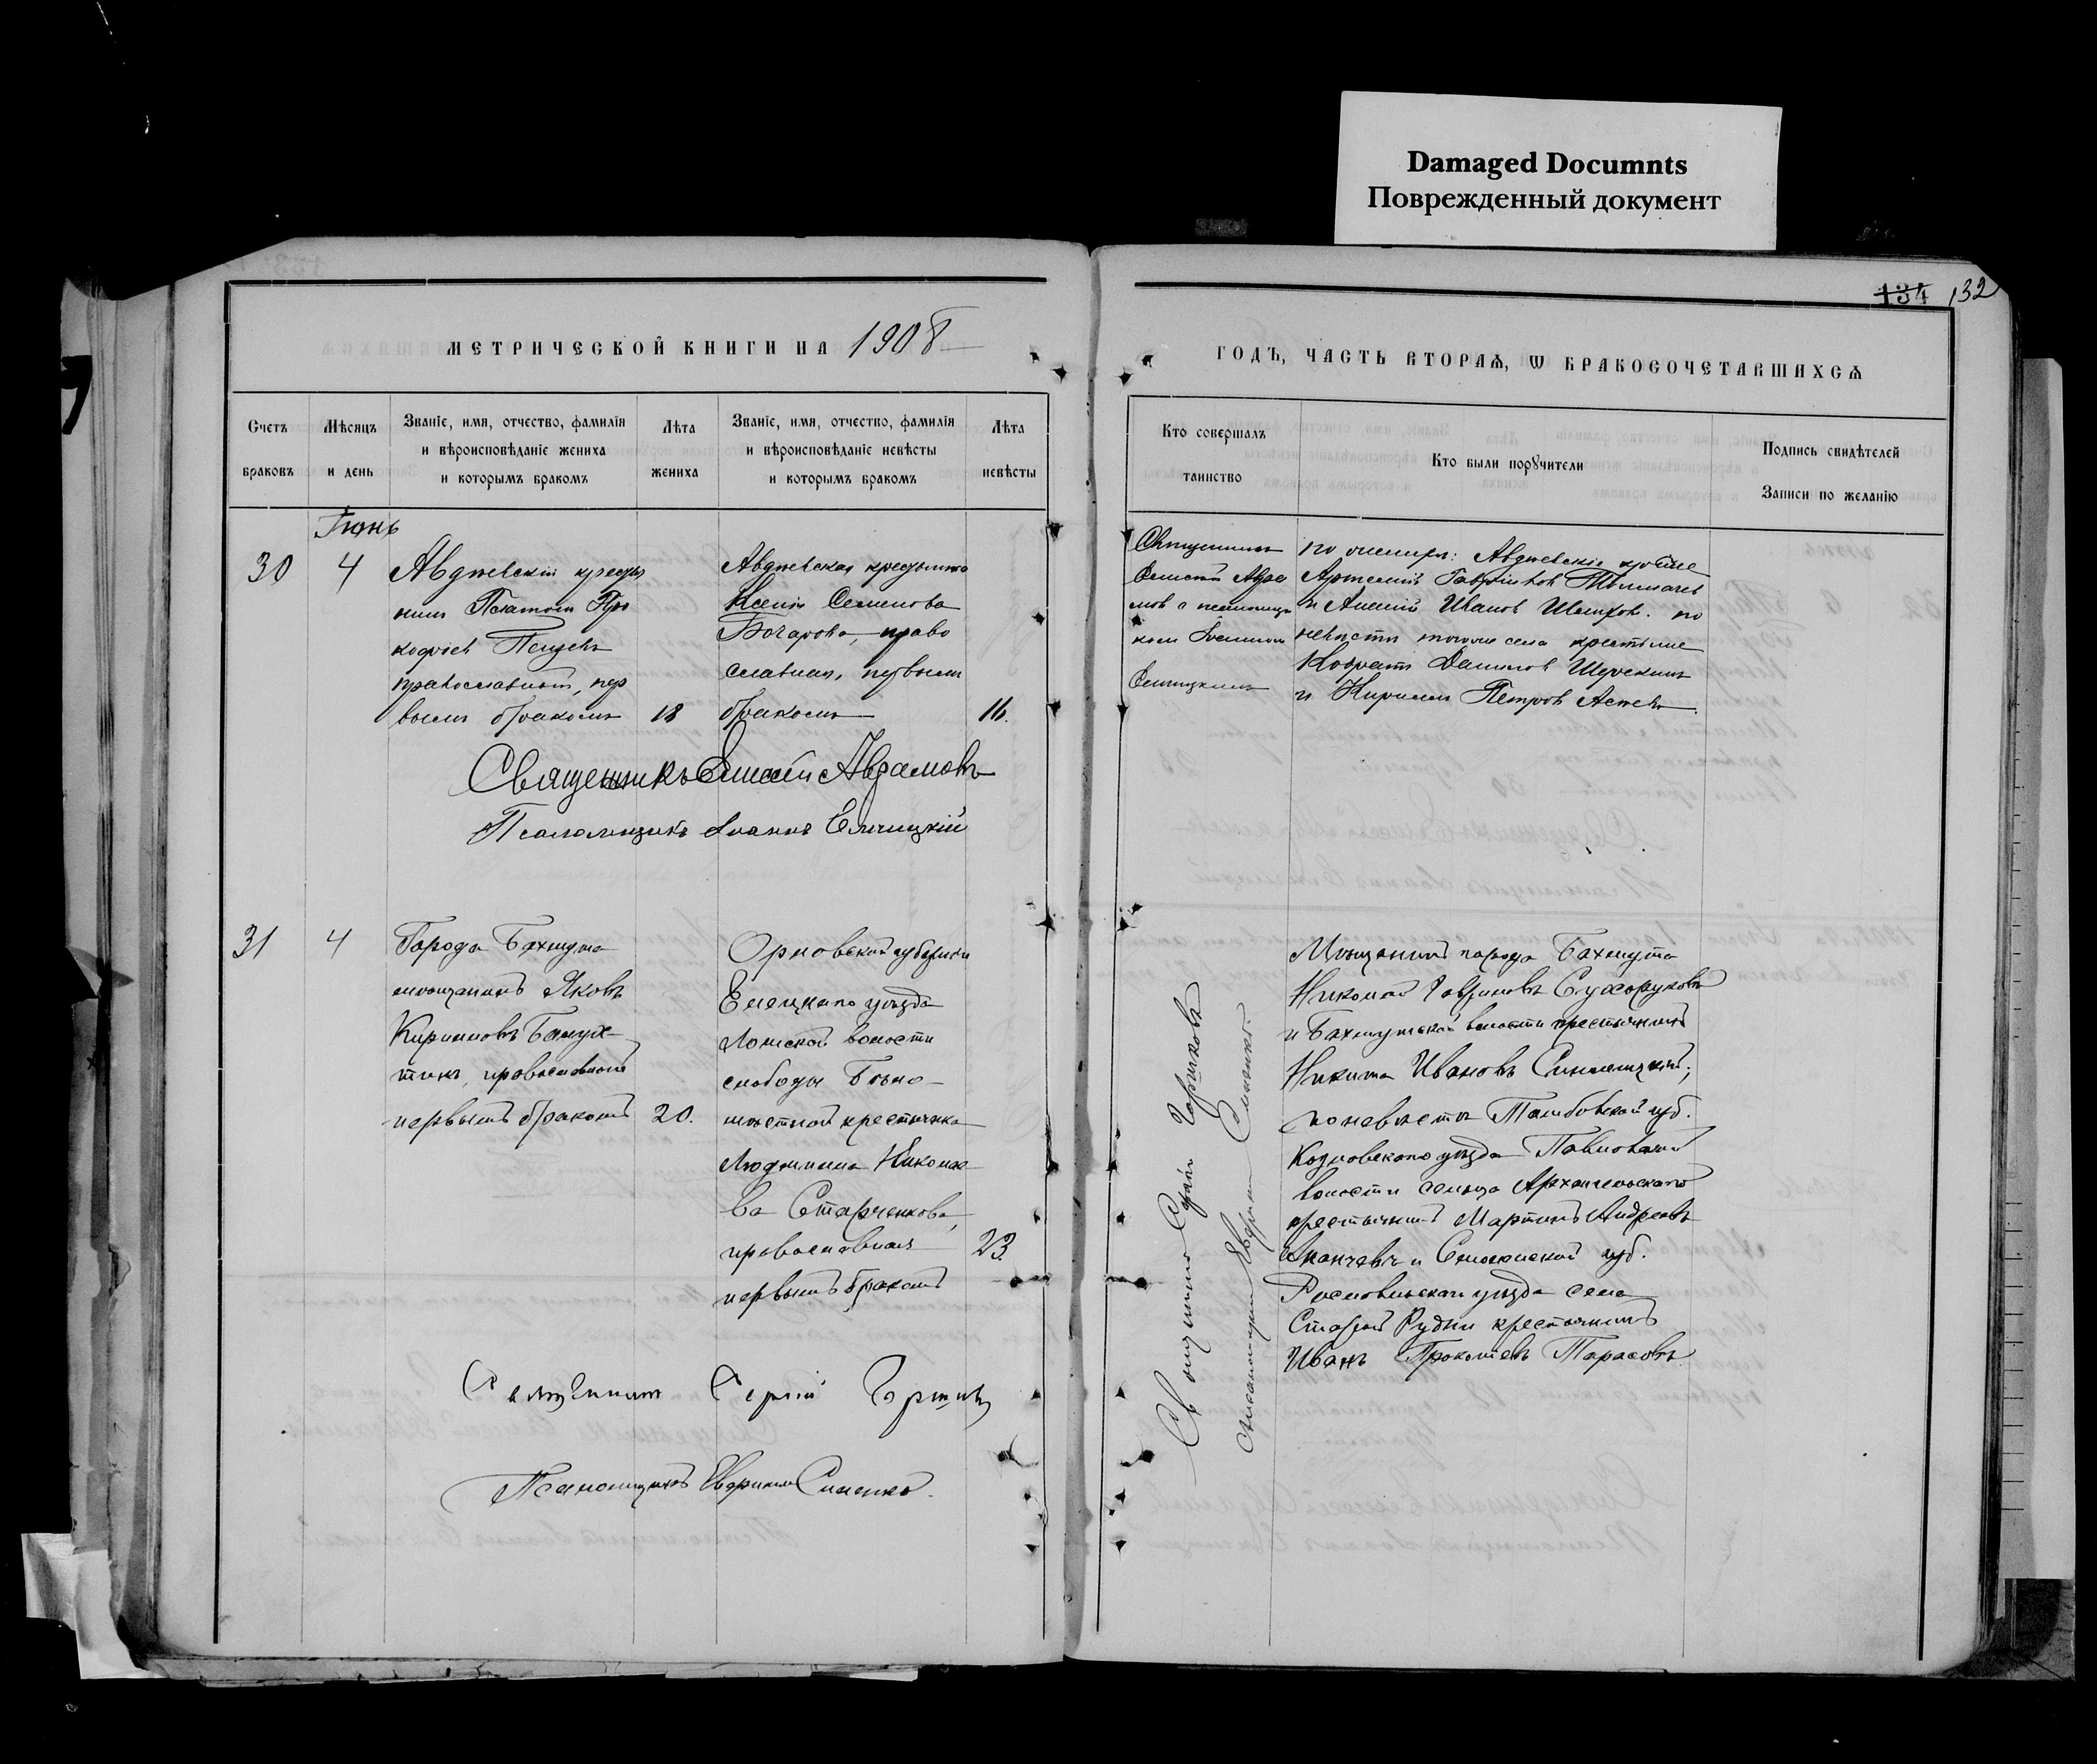 Damaged Documnts
Поврежденный документ
134 132
МЕТРИЧЕСКОЙ КНИГИ НА 1908
ГОДЪ, ЧАСТЬ ВТОРАѦ, Ѡ БРАКОСОЧЕТАВШИХСѦ
Счетъ браковъ
Мѣсяцъ и день
Званіе, имя, отчество, фамилія
и вѣроисповѣданіе жениха
и которымъ бракомъ
Лѣта жениха
Званіе, имя, отчество, фамилія
и вѣроисповѣданіе невѣсты
и которымъ бракомъ
Лѣта невѣсты
Кто совершалъ таинство
Кто были порꙋчители
Подпись свидѣтелей
Записи по желанію
Іюнь
30
4
Авдѣевскій крестья
нинъ Платонъ Про
кофьевъ
православный, пер
вымъ бракомъ
18
Авдѣевская крестьянка
Ксенія Семенова
Бочарова, право
славная, первымъ
бракомъ
16.
Священникъ
Елисей Авра
мовъ с псаломщи
комъ Іоанномъ
по женихѣ: Авдѣевскіе
Артемій
и Алексій Ивановъ по
невѣстѣ того же села крестьяне
Кодратъ Даниловъ
и Кириллъ Петровъ
Священникъ Елисей Аврамовъ
Псаломщикъ Іоаннъ
31
4
Города Бахмута
мѣщанинъ Яковъ
Кирилловъ
православный
первымъ бракомъ
20.
Орловской губерніи
Елецкаго уѣзда
волости
слободы
крестьянка
Людмила Николае
ва Старченкова,
православная
первымъ бракомъ
23.
Священникъ Сергій
Псаломщикъ
Мѣщанинъ города Бахмута
Николай Гавриловъ Сухоруковъ
и Бахмутской волости крестьянинъ
Никита Ивановъ
по невѣстѣ Тамбовской губ.
Козловскаго уѣзда Павловской
волости сельца Архангельскаго
крестьянинъ Мартинъ Андреевъ
и Смоленской губ.
Рославльскаго уѣзда села
Старой Рудни крестьянинъ
Иванъ Прокопіевъ Тарасовъ.
Священникъ Сергій
Псаломщикъ